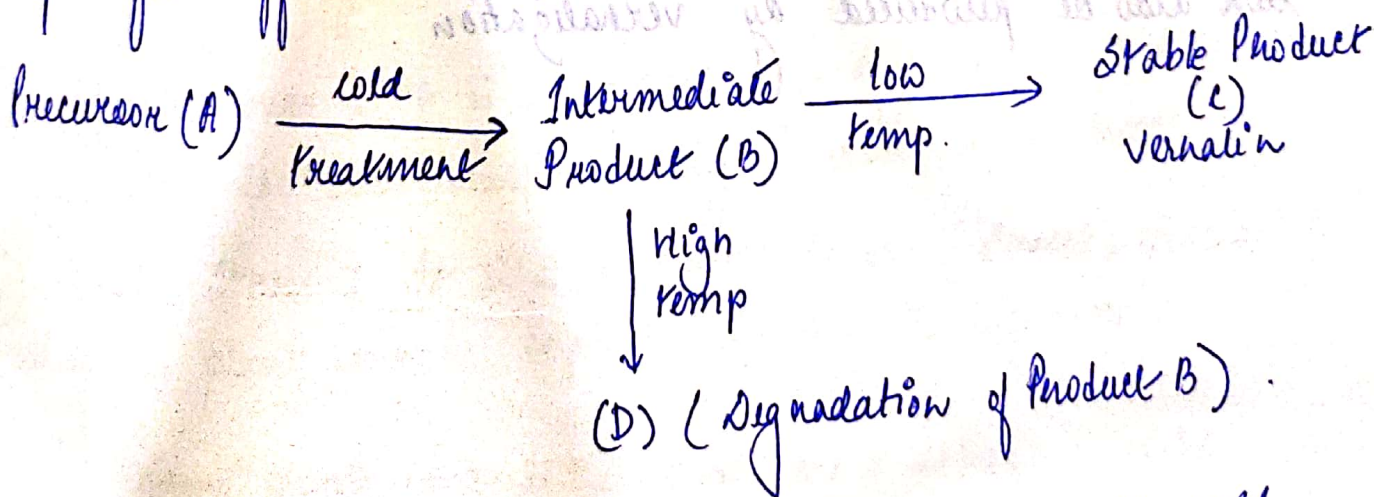 Precursor (A) cold treatment Intermediate Product (B) low temp. Stable Product (C) Vernalin
High temp
(D) (Degradation of Product B).